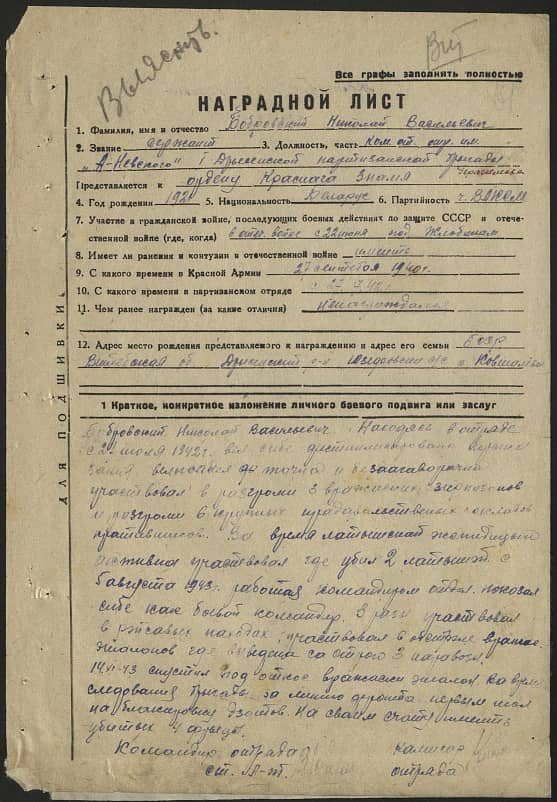 Выяснить.
Вит
Все графы заполнить полностью
НАГРАДНОЙ ЛИСТ
1. Фамилия, имя и отчество Бобровский Николай Васильевич
2. Звание сержант 3. Должность, часть Ком. от. отр. им.
"А-Невского" 1 Дрыссенской партизанской бригады
Представляется к ордену Красного Знамя
4. Год рождения 1921 5. Национальность Беларус 6. Партийность ч. ВЛКСМ
7. Участие в гражданской войне, последующих боевых действиях по защите СССР и отече-
ственной войне (где, когда) в отеч. войне с 22 июня под Жлобином
8. Имеет ли ранения и контузии в отечественной войне имеет
9. С какого времени в Красной Армии 27 сентебря 1940 г.
10. С какого времени в партизанском отряде
11. Чем ранее награжден (за какие отличия) Ненаглаждался
12. Адрес место рождения представляемого к награждению и адрес его семьи БССР
Витебская об Дрысенский р-н с/с д.
ДЛЯ ПОДШИВКИ
1 Краткое, конкретное изложение личного боевого подвига или заслуг
Бобровский Николай Васильевич. Находясь в отряде
июня 1942 г. вел себе дистиплинировано
выполнял досточно и безаагаворочно
участвовал в разгроми 3 вражеских гарнозонов
и разгроми 6 крупных прадавольственых складов
притивников. За время латышской экспидицыи
активна участвовал где убил 2 латышей. С
6 августа 1943 г. работая командиром отдел. показал
себе как боевой командир. 3 раза участвовал
в рэйсавых паходах, участвовал в обстреле вражес.
эшалонов где выведена са строя 3 паравоза.
спустил под откос вражеский эшалон. Ва время
следования бригады за линию фронта первым шол
на блакировку дзотов. На своим счету имеить
убитых 4 фрыца.
Командир отрада комисар
ст. л-т. отрада